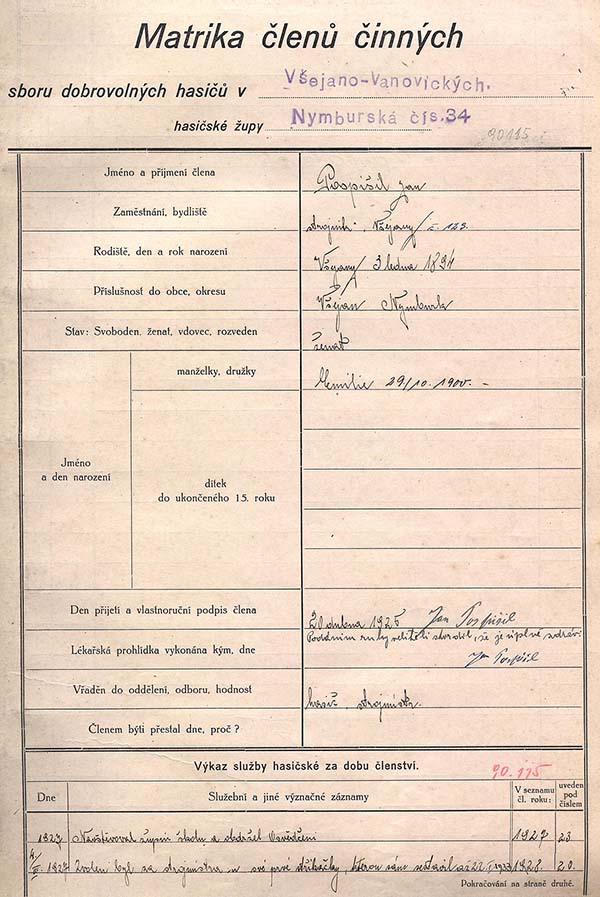 Matrika členů činných
sboru dobrovolných hasičů v Všejano-Vanovických.
hasičské župy Nymburská čís. 34
90115
Jméno a příjmení člena Pospíšil Jan
Zaměstnání, bydliště strojník, Všejany č. 123.
Rodiště, den a rok narození Všejany 3 ledna 1894
Příslušnost do obce, okresu Všejan Nymburk
Stav: Svoboden, ženat, vdovec, rozveden ženat
manželky, družky Emilie 29/10. 1900. -
Jméno
a den narození
dítek
do ukončeného 15. roku
Den přijetí a vlastnoruční podpis člena 20 dubna 1925 Jan Pospíšil
Lékařská prohlídka vykonána kým, dne Podáním ruky veliteli stvrdil, že je úplně zdráv.
Jan Pospíšil
Vřaděn do oddělení, odboru, hodnost hasič, strojmistr.
Členem býti přestal dne, proč?
Výkaz služby hasičské za dobu členství. 90.115
Dne Služební a jiné význačné záznamy V seznamu čl. roku: uveden pod číslem
1927 Navštěvoval župní školu a obdržel Osvědčení 1927 23
1927 Zvolen byl za strojmistra u své prvé stříkačky, kterou sám sestavil 1928. 20.
Pokračování na straně druhé.